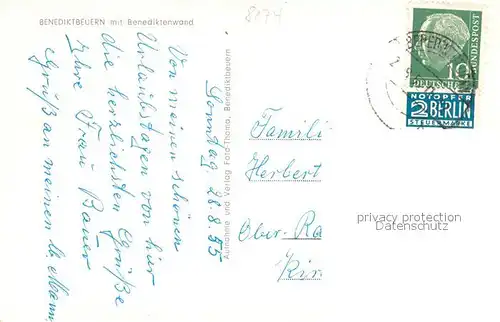 BENEDIKTBEUERN mit Benediktenwand
8174
Von meinen schönen
Urlaubstagen von hier
die herzlichsten Grüße
Ihre Frau Bauer
Grüß an meinen lb. Mann
Sonntag. 28.8.55
Aufnahme und Verlag Foto-Thoma, Benediktbeuern
Famili
Herbert
Ober-Ra
Kir
10
DEUTSCHE BUNDESPOST
NOTOPFER
2 BERLIN
STEUERMARKE
privacy protection
Datenschutz